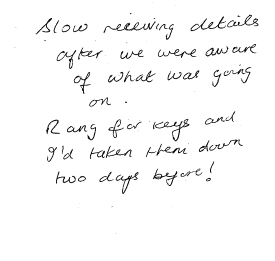 Slow receiving details
after we were aware
of what was going
on.
Rang for keys and
I'd taken them down
two days before!